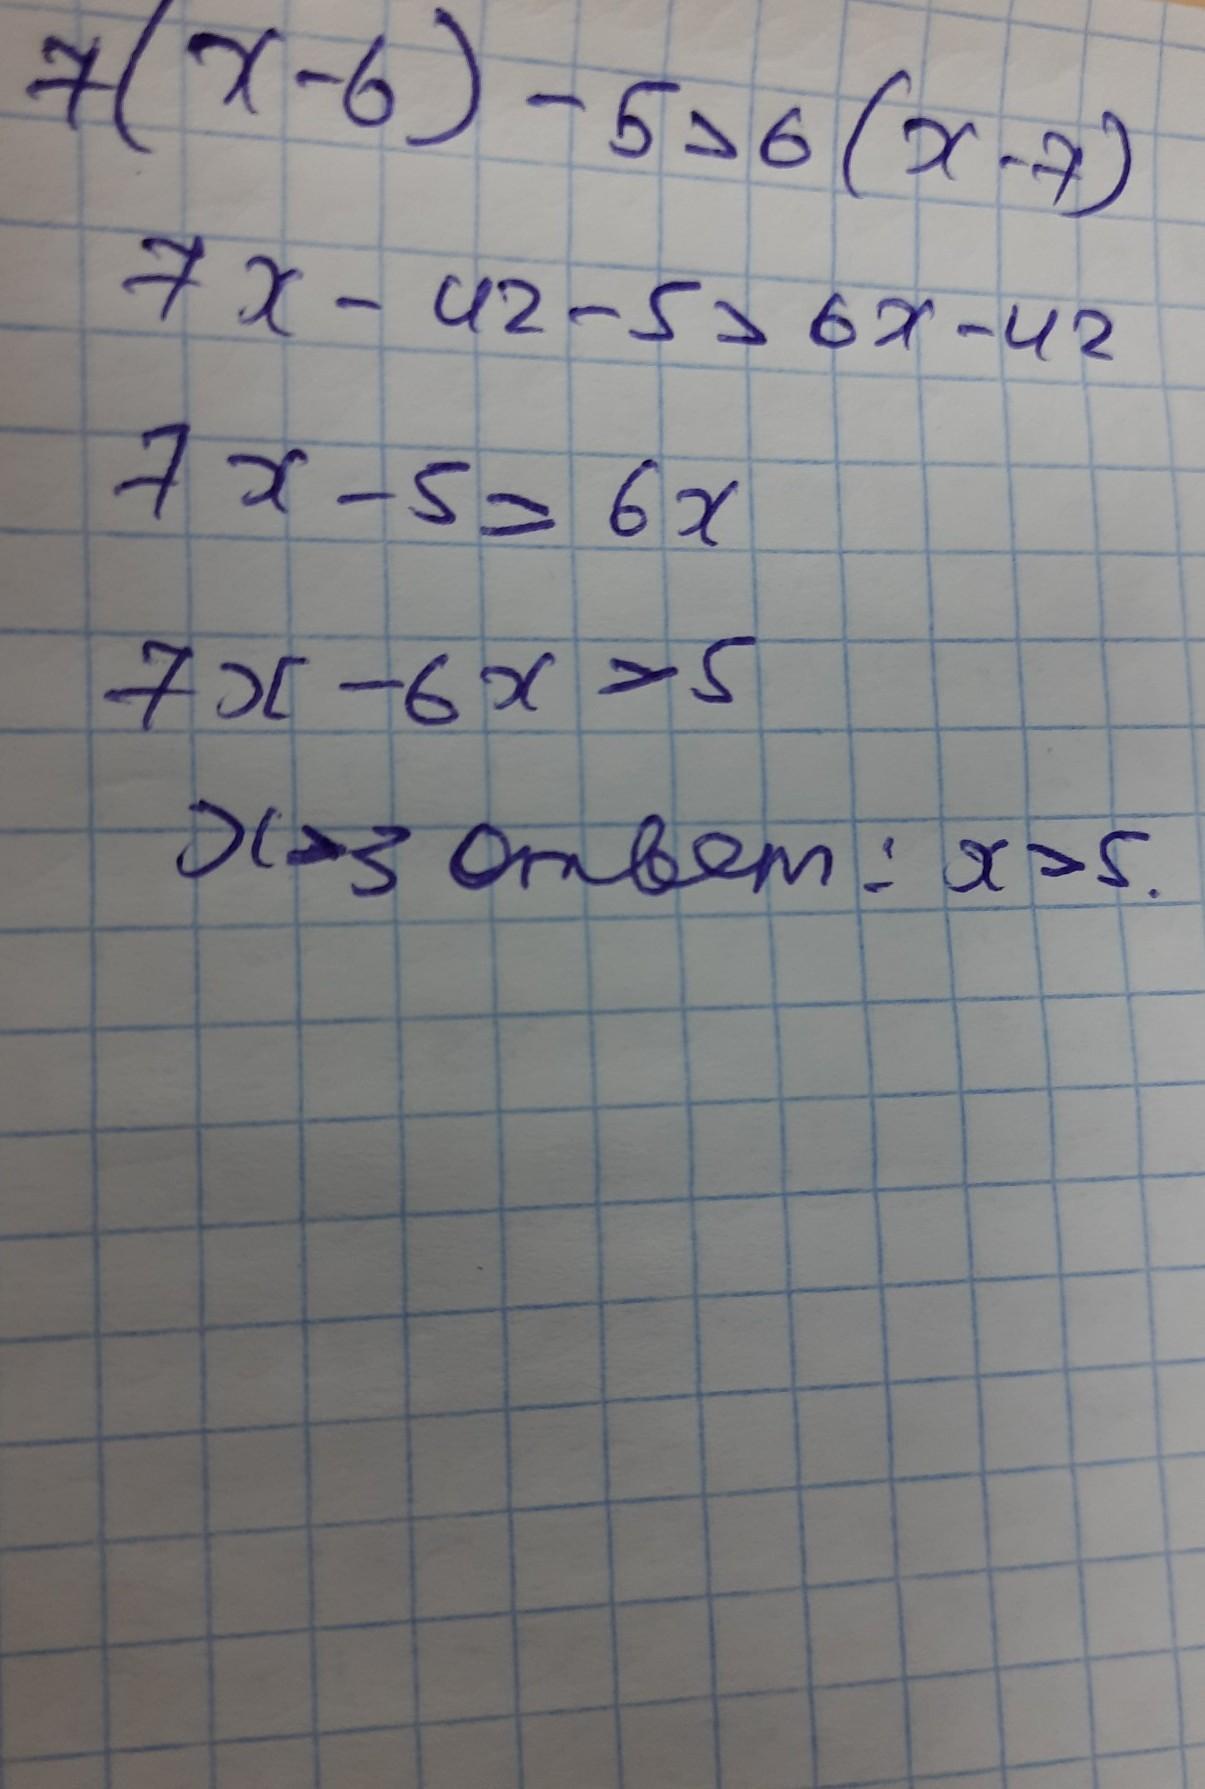 7(x-6)-5>6(x-7)
7x-42-5>6x-42
7x-5≥6x
7x-6x>5
x>3 Ответ: x>5.